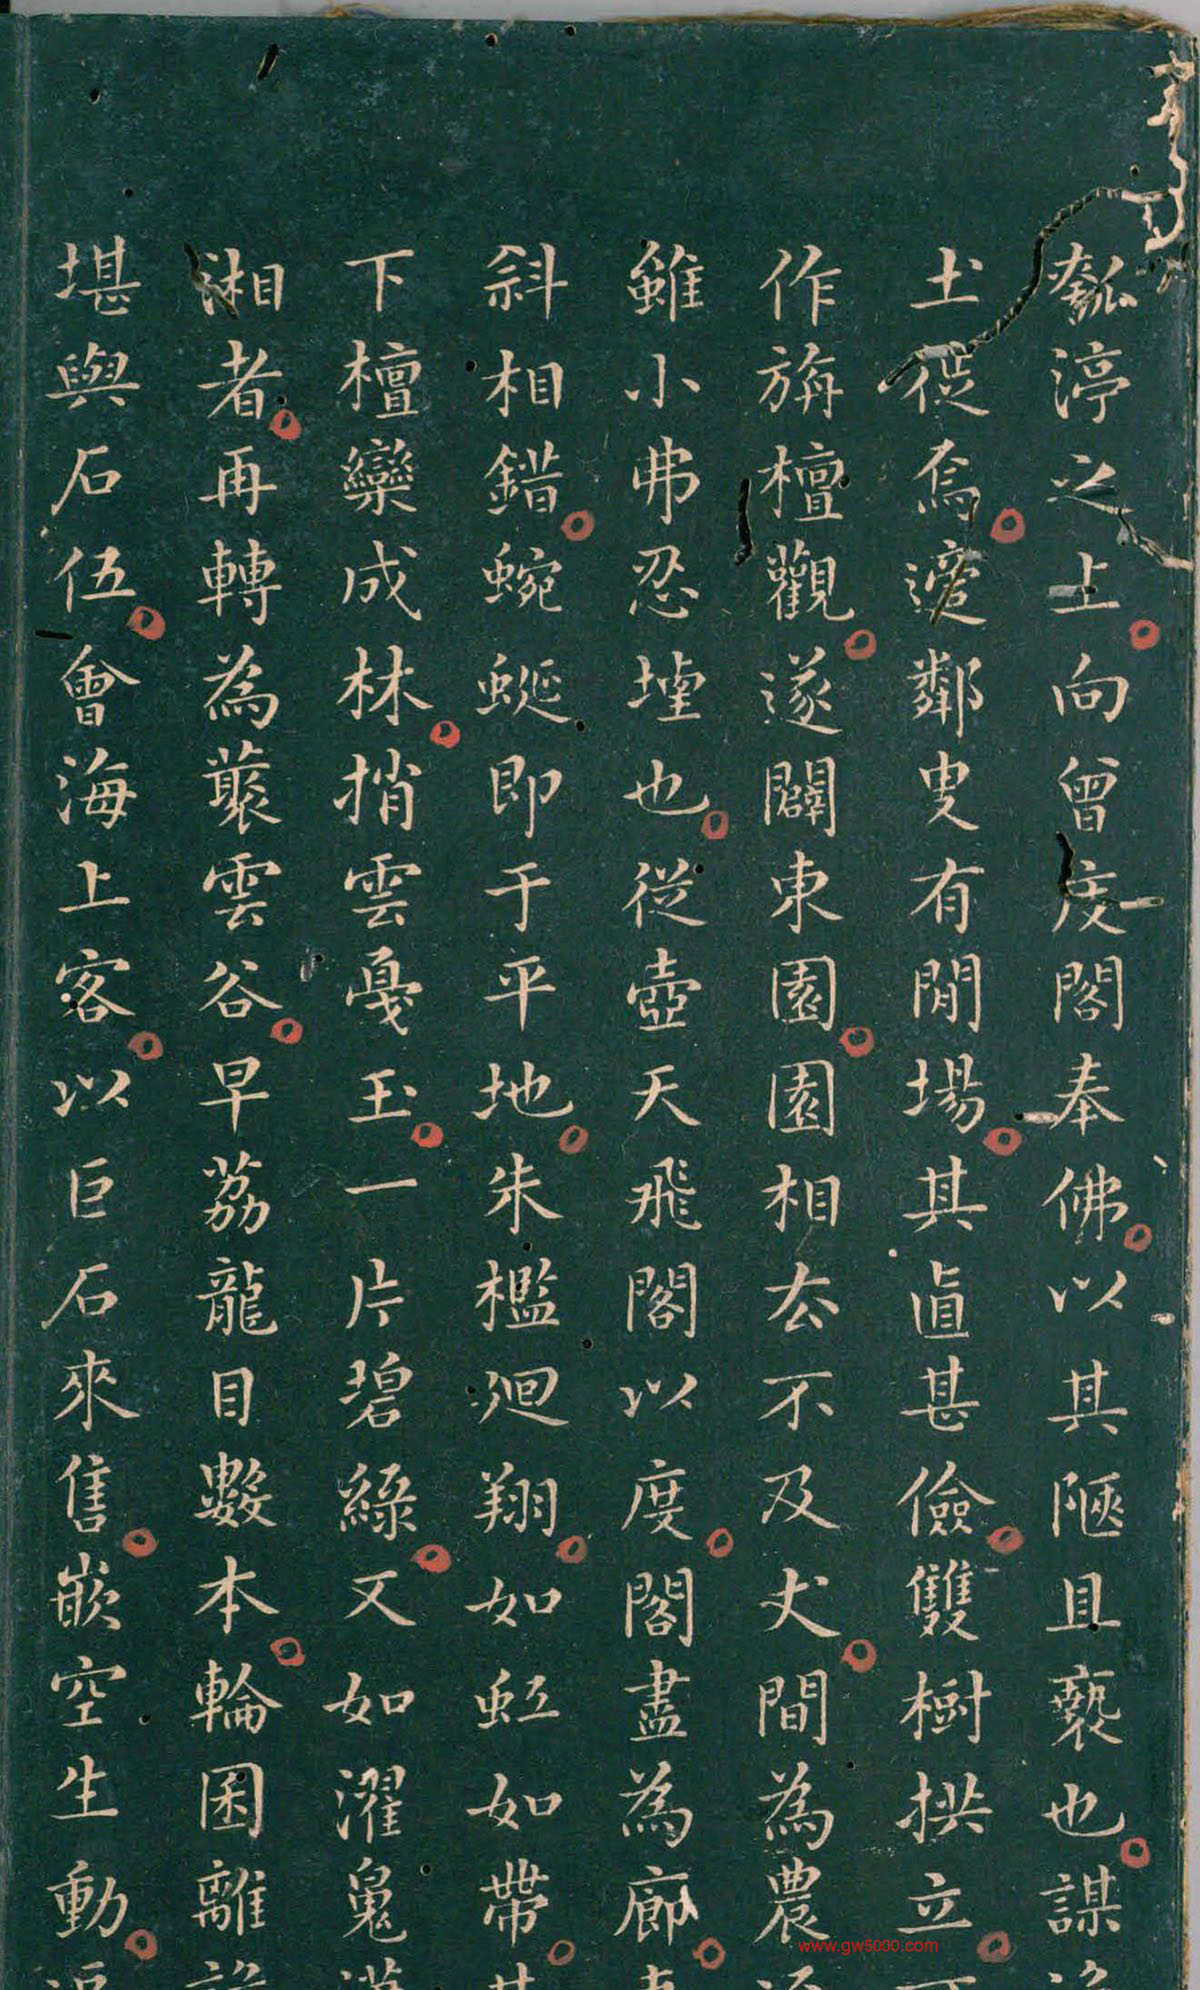 瓠渟之上向曾度閣奉佛以其陋且褻也謀
土從為遶鄰叟有閒場其直甚儉雙樹拱立
作旃檀觀遂闢東園園相去不及丈間為農
雖小弗忍堙也從壺天飛閣以度閣盡為廊
斜相錯蜿蜒即于平地朱檻迴翔如虹如帶
下檀欒成林捎雲戛玉一片碧綠又如濯鳧
湘者再轉為叢雲谷早荔龍目數本輪囷離
堪與石伍會海上客以巨石來售嵌空生動
www.gw5000.com